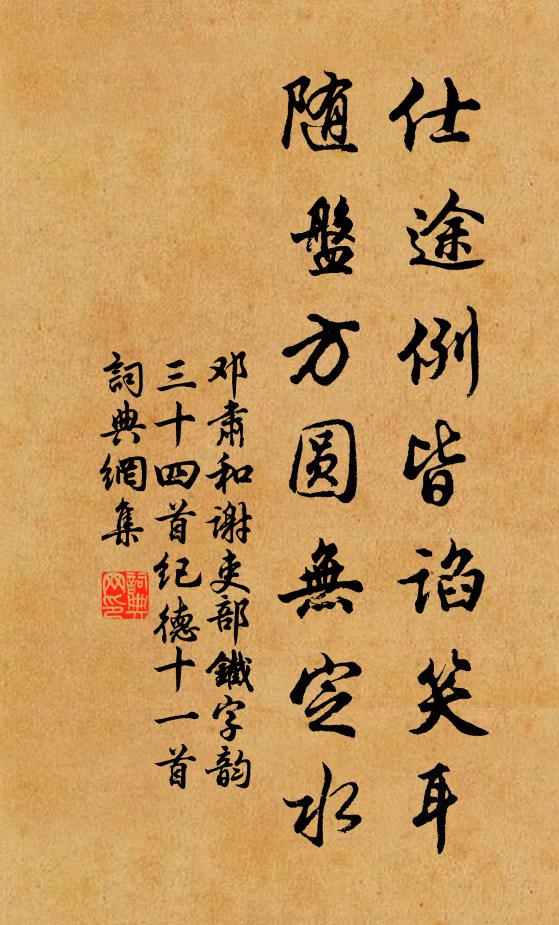 仕途例皆谄笑耳
随盤方圆無定水
邓肅和谢吏部鐵字韵
三十四首纪德十一首
詞典網集
詞典网印